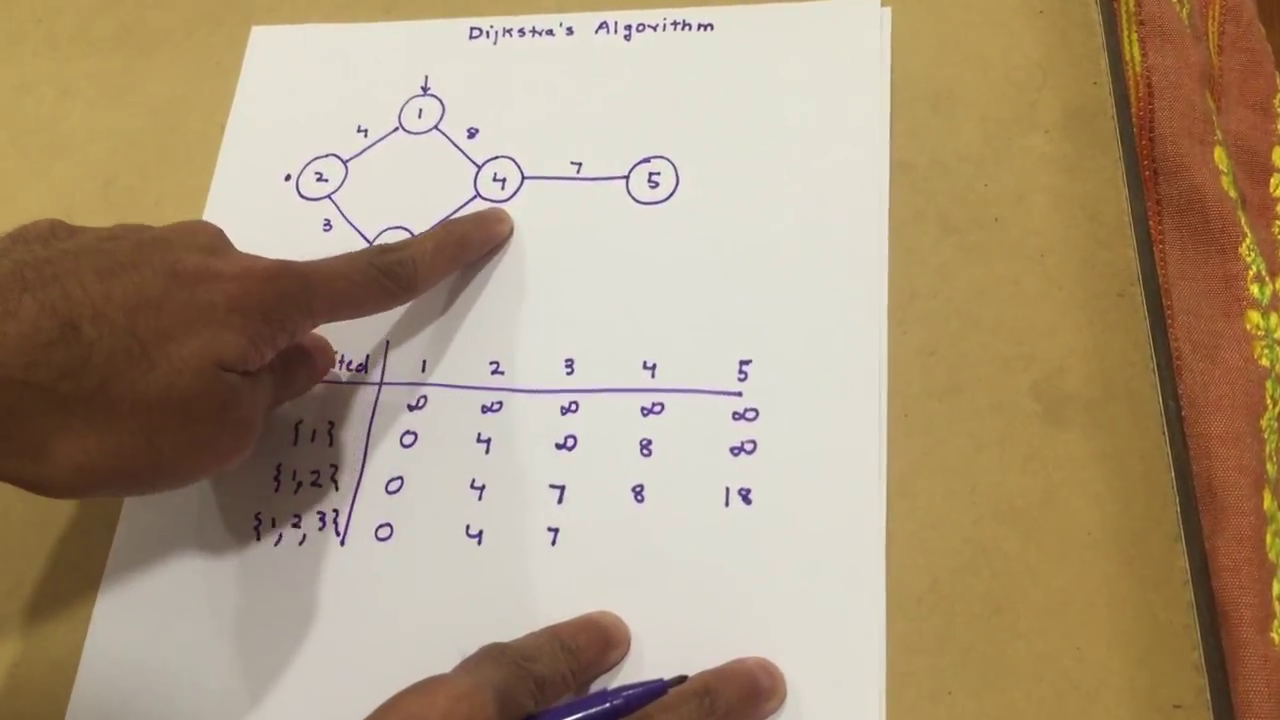 Dijkstra's Algorithm
1
4 8
2 4 7 5
3
1 2 3 4 5
∞ ∞ ∞ ∞ ∞
{1} 0 4 ∞ 8 ∞
{1,2} 0 4 7 8 18
{1,2,3} 0 4 7